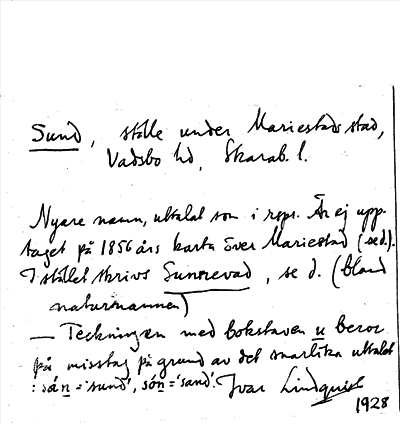 Sund, ställe under Mariestads stad,
Vadsbo hd, Skarab. l.
Nyare namn, uttalat som i rspr. Är ej upp-
taget på 1856 års karta över Mariestad (se d.).
I stället skrivs Sunnevad, se d. (bland
naturnamnen)
— Teckningen med bokstaven u beror
på misstag på grund av det snarlika uttalet
: sån = 'sund', són = 'sand'. Ivar Lindquist
1928